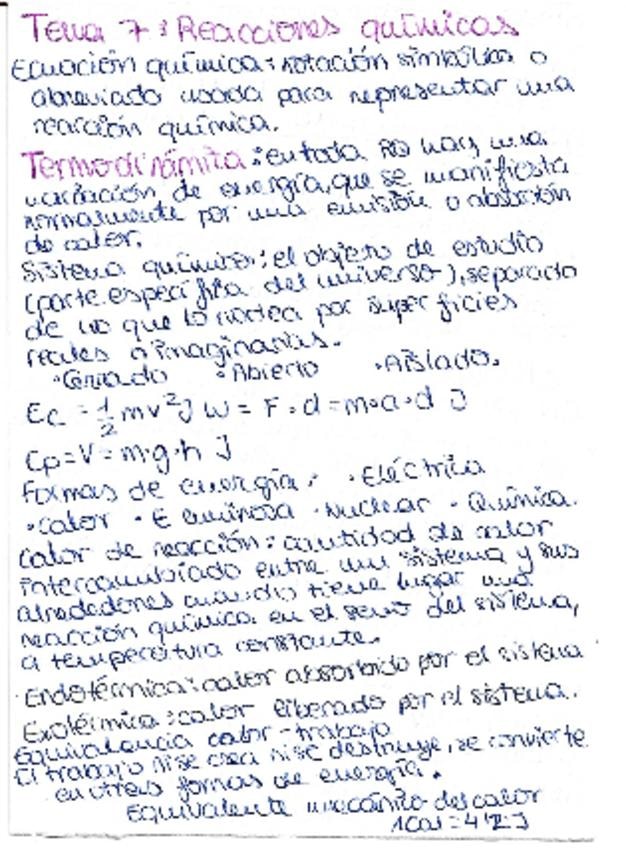 Tema 7: Reacciones químicas
Ecuación química: notación simbólica o
abreviado usada para representar una
reacción química.
Termodinámica: en toda RQ hay una
variación de energía, que se manifiesta
normalmente por una emisión o absorción
de calor.
Sistema químico: el objeto de estudio
(parte específica del universo), separado
de lo que lo rodea por superficies
reales o imaginarias.
·Cerrado ·Abierto ·Aislado.
Ec = 1/2 mv² J W = F·d = m·a·d J
Ep = V = m·g·h J
Formas de energía: ·Eléctrica
·Calor ·E luminosa ·Nuclear ·Química.
Calor de reacción: cantidad de calor
intercambiado entre un sistema y sus
alrededores cuando tiene lugar una
reacción química en el seno del sistema,
a temperatura constante.
·Endotérmica: calor absorbido por el sistema
Exotérmica: calor liberado por el sistema.
Equivalencia calor-trabajo
El trabajo ni se crea ni se destruye, se convierte
en otras formas de energía.
Equivalente mecánico del calor
1Cal = 4'12 J